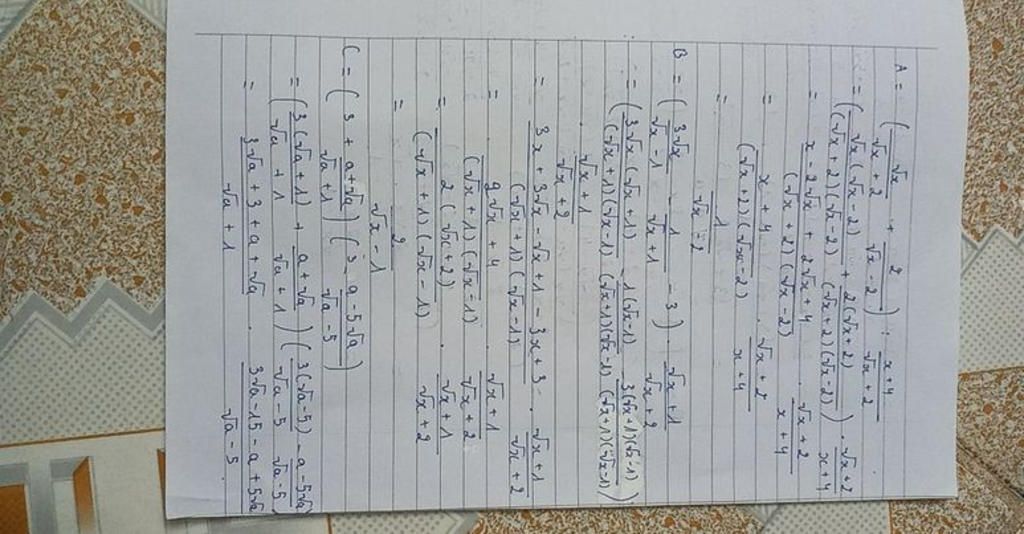 A = (√x/(√x+2) + 2/(√x-2)) : (x+4)/(√x+2)
= (√x(√x-2)/((√x+2)(√x-2)) + 2(√x+2)/((√x-2)(√x+2))) . (√x+2)/(x+4)
= (x-2√x+2√x+4)/((√x+2)(√x-2)) . (√x+2)/(x+4)
= (x+4)/((√x+2)(√x-2)) . (√x+2)/(x+4)
= 1/(√x-2)
B = (3√x/(√x-1) - 1/(√x+1) - 3) . (√x+1)/(√x+2)
= (3√x(√x+1)/((√x+1)(√x-1)) - 1(√x-1)/((√x+1)(√x-1)) - 3(√x+1)(√x-1)/((√x+1)(√x-1)))
. (√x+1)/(√x+2)
= (3x+3√x-√x+1-3x+3)/((√x+1)(√x-1)) . (√x+1)/(√x+2)
= (2√x+4)/((√x+1)(√x-1)) . (√x+1)/(√x+2)
= 2(√x+2)/((√x+1)(√x-1)) . (√x+1)/(√x+2)
= 2/(√x-1)
C = (3 + (a+√a)/(√a+1)) (3 - (a-5√a)/(√a-5))
= (3(√a+1)/(√a+1) + (a+√a)/(√a+1)) (3(√a-5)/(√a-5) - (a-5√a)/(√a-5))
= (3√a+3+a+√a)/(√a+1) . (3√a-15-a+5√a)/(√a-5)